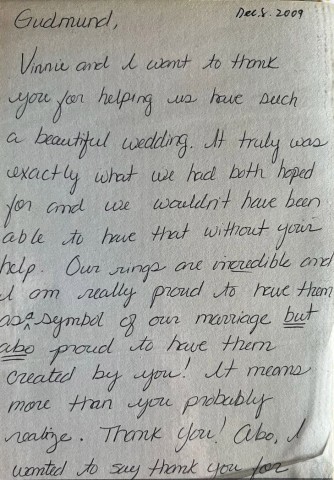 Gudmund, Dec. 8. 2009
Vinnie and I want to thank
you for helping us have such
a beautiful wedding. It truly was
exactly what we had both hoped
for and we wouldn't have been
able to have that without your
help. Our rings are incredible and
I am really proud to have them
as a symbol of our marriage but
also proud to have them
created by you! It means
more than you probably
realize. Thank you! Also, I
wanted to say thank you for